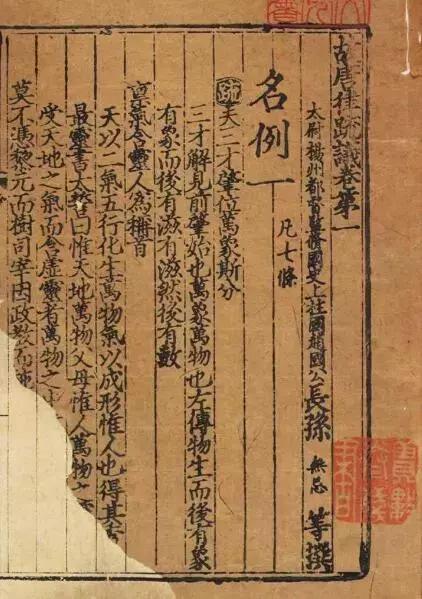 故唐律疏議卷第一
太尉揚州都督監脩國史上柱國趙國公長孫無忌等撰
名例一 凡七條
疏夫三才肇位萬象斯分
三才解見前肇始也萬象萬物也左傳物生而後有象
有象而後有滋有滋然後有數
稟氣含靈人為稱首
天以二氣五行化生萬物氣以成形惟人也得其
最靈書太誓曰惟天地萬物父母惟人萬物之
受天地之氣而含虛靈者萬物之
莫不憑黎元而樹司宰因政教而施